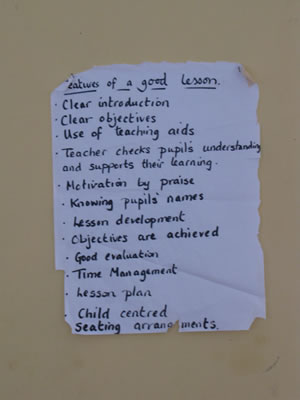 Features of a good lesson.
· Clear introduction
· Clear objectives
· Use of teaching aids
· Teacher checks pupils' understanding
and supports their learning.
· Motivation by praise
· Knowing pupils' names
· Lesson development
· Objectives are achieved
· Good evaluation
· Time Management
· Lesson plan
· Child centred
Seating arrangements.